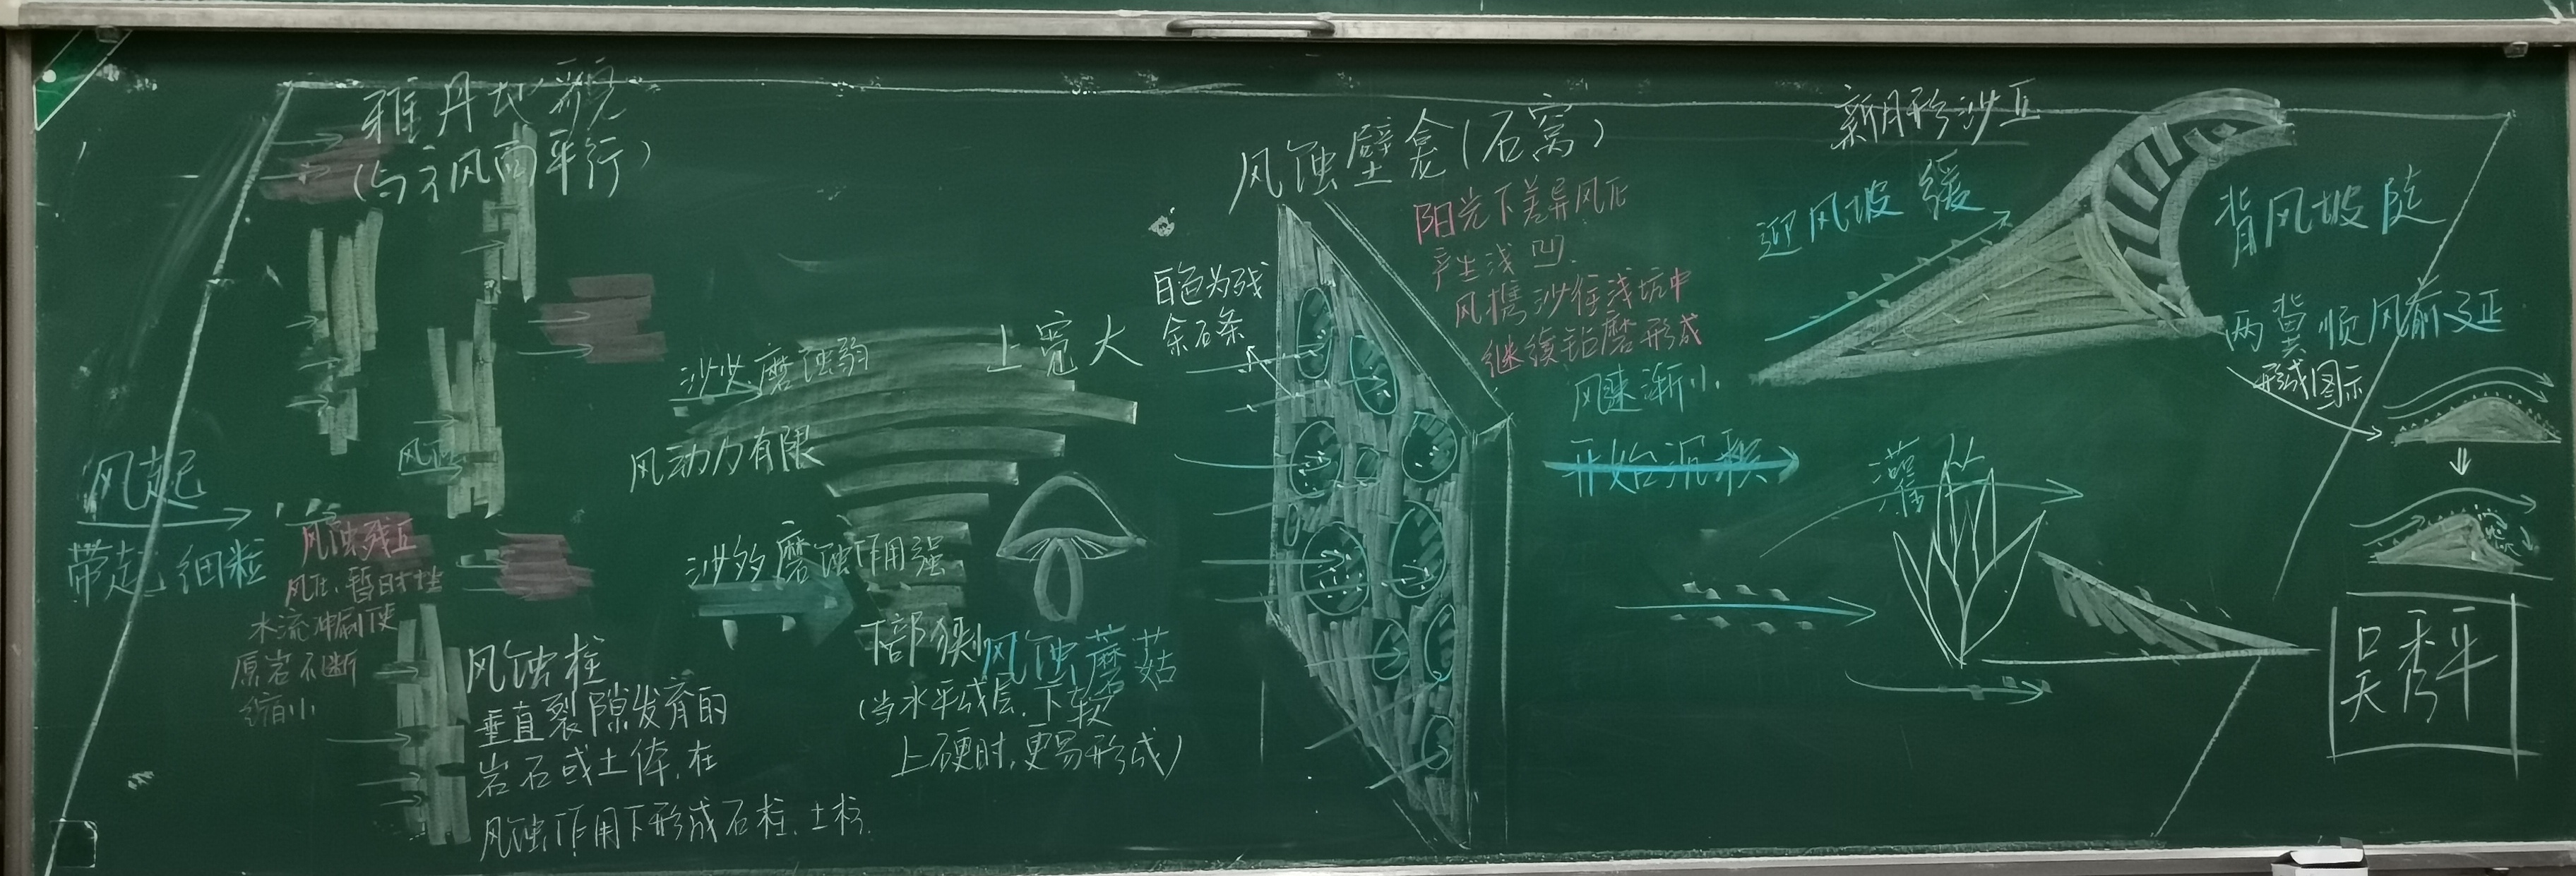 雅丹地貌
(与主风向平行)
风起
带起细粒
风向
风蚀残丘
风化、暂时性
水流冲刷使
原岩不断
缩小
风蚀柱
垂直裂隙发育的
岩石或土体,在
风蚀作用下形成石柱、土柱.
沙少磨蚀弱
上宽大
风动力有限
沙多磨蚀作用强
下部狭小
风蚀蘑菇
(当水平成层,下软
上硬时,更易形成)
风蚀壁龛(石窝)
白色为残
余石条
阳光下差异风化
产生浅凹.
风携沙往浅坑中
继续钻磨形成
风速渐小.
开始沉积
新月形沙丘
迎风坡 缓
背风坡陡
两翼顺风前延
形成图示
灌丛
吴秀平